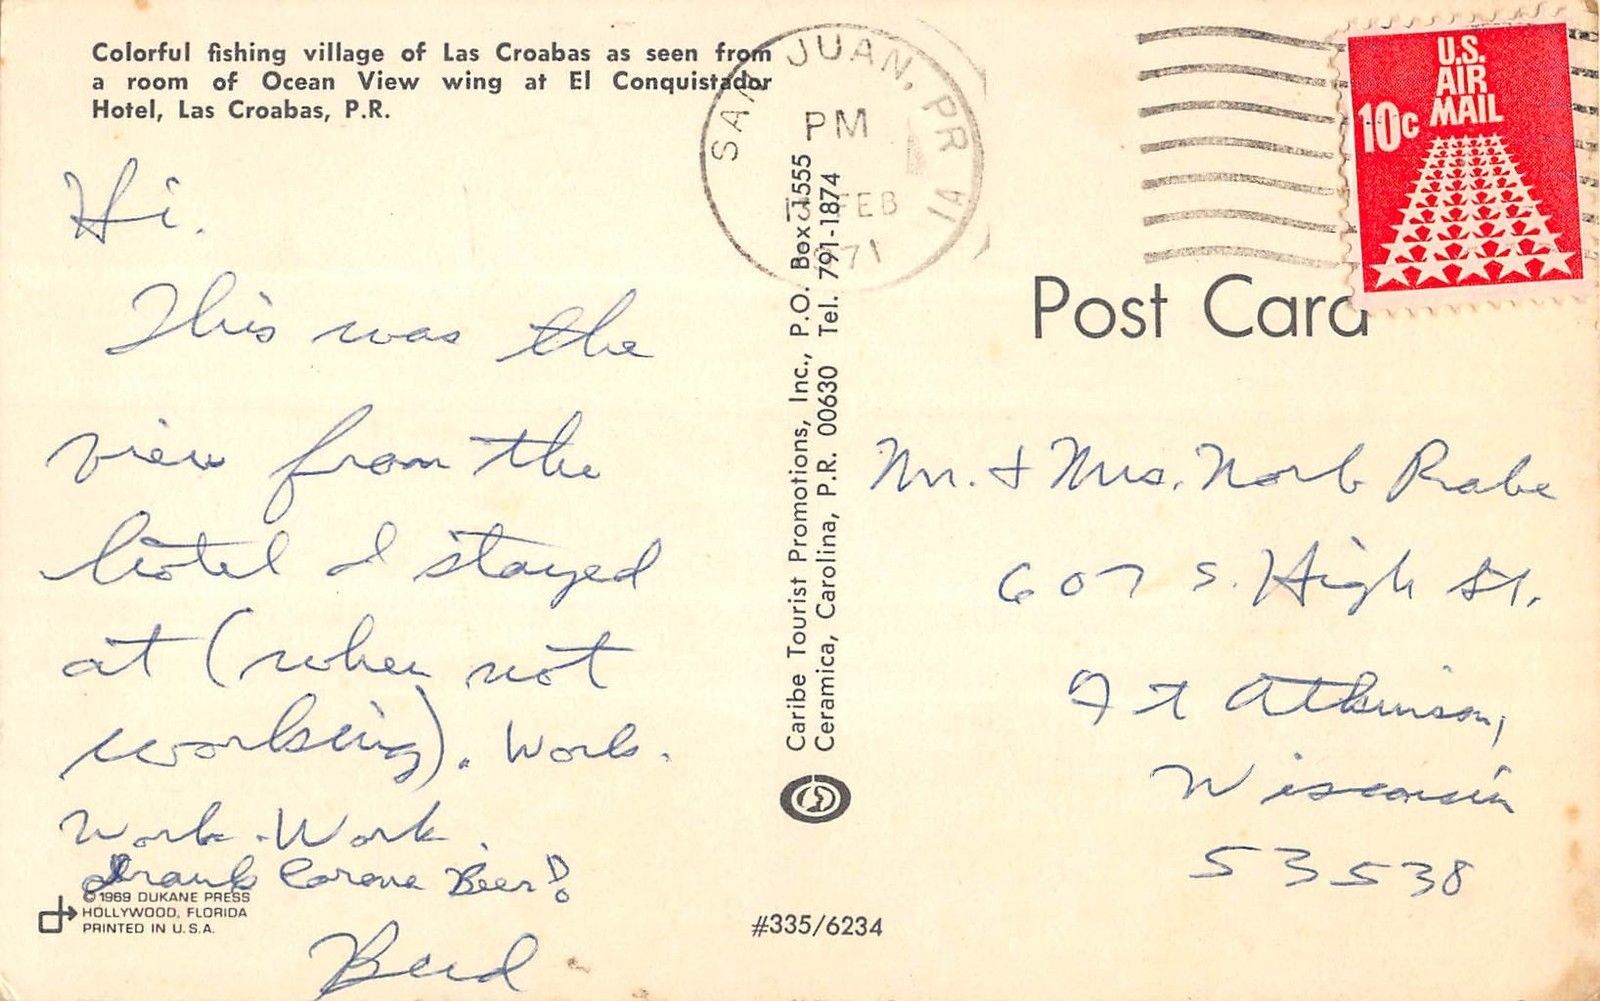 Colorful fishing village of Las Croabas as seen from
a room of Ocean View wing at El Conquistador
Hotel, Las Croabas, P.R.
Hi.
This was the
view from the
hotel I stayed
at (when not
working). Work.
Work. Work.
Drank Corona Beer!
Bud
© 1969 DUKANE PRESS
HOLLYWOOD, FLORIDA
PRINTED IN U.S.A.
Caribe Tourist Promotions, Inc., P.O. Box 1555
Ceramica, Carolina, P.R. 00630 Tel. 791-1874
#335/6234
SAN JUAN, PR
PM
FEB
1971
U.S.
AIR
MAIL
10c
Post Card
Mr. & Mrs. Norb Rabe
607 S. High St.
Ft Atkinson,
Wisconsin
53538